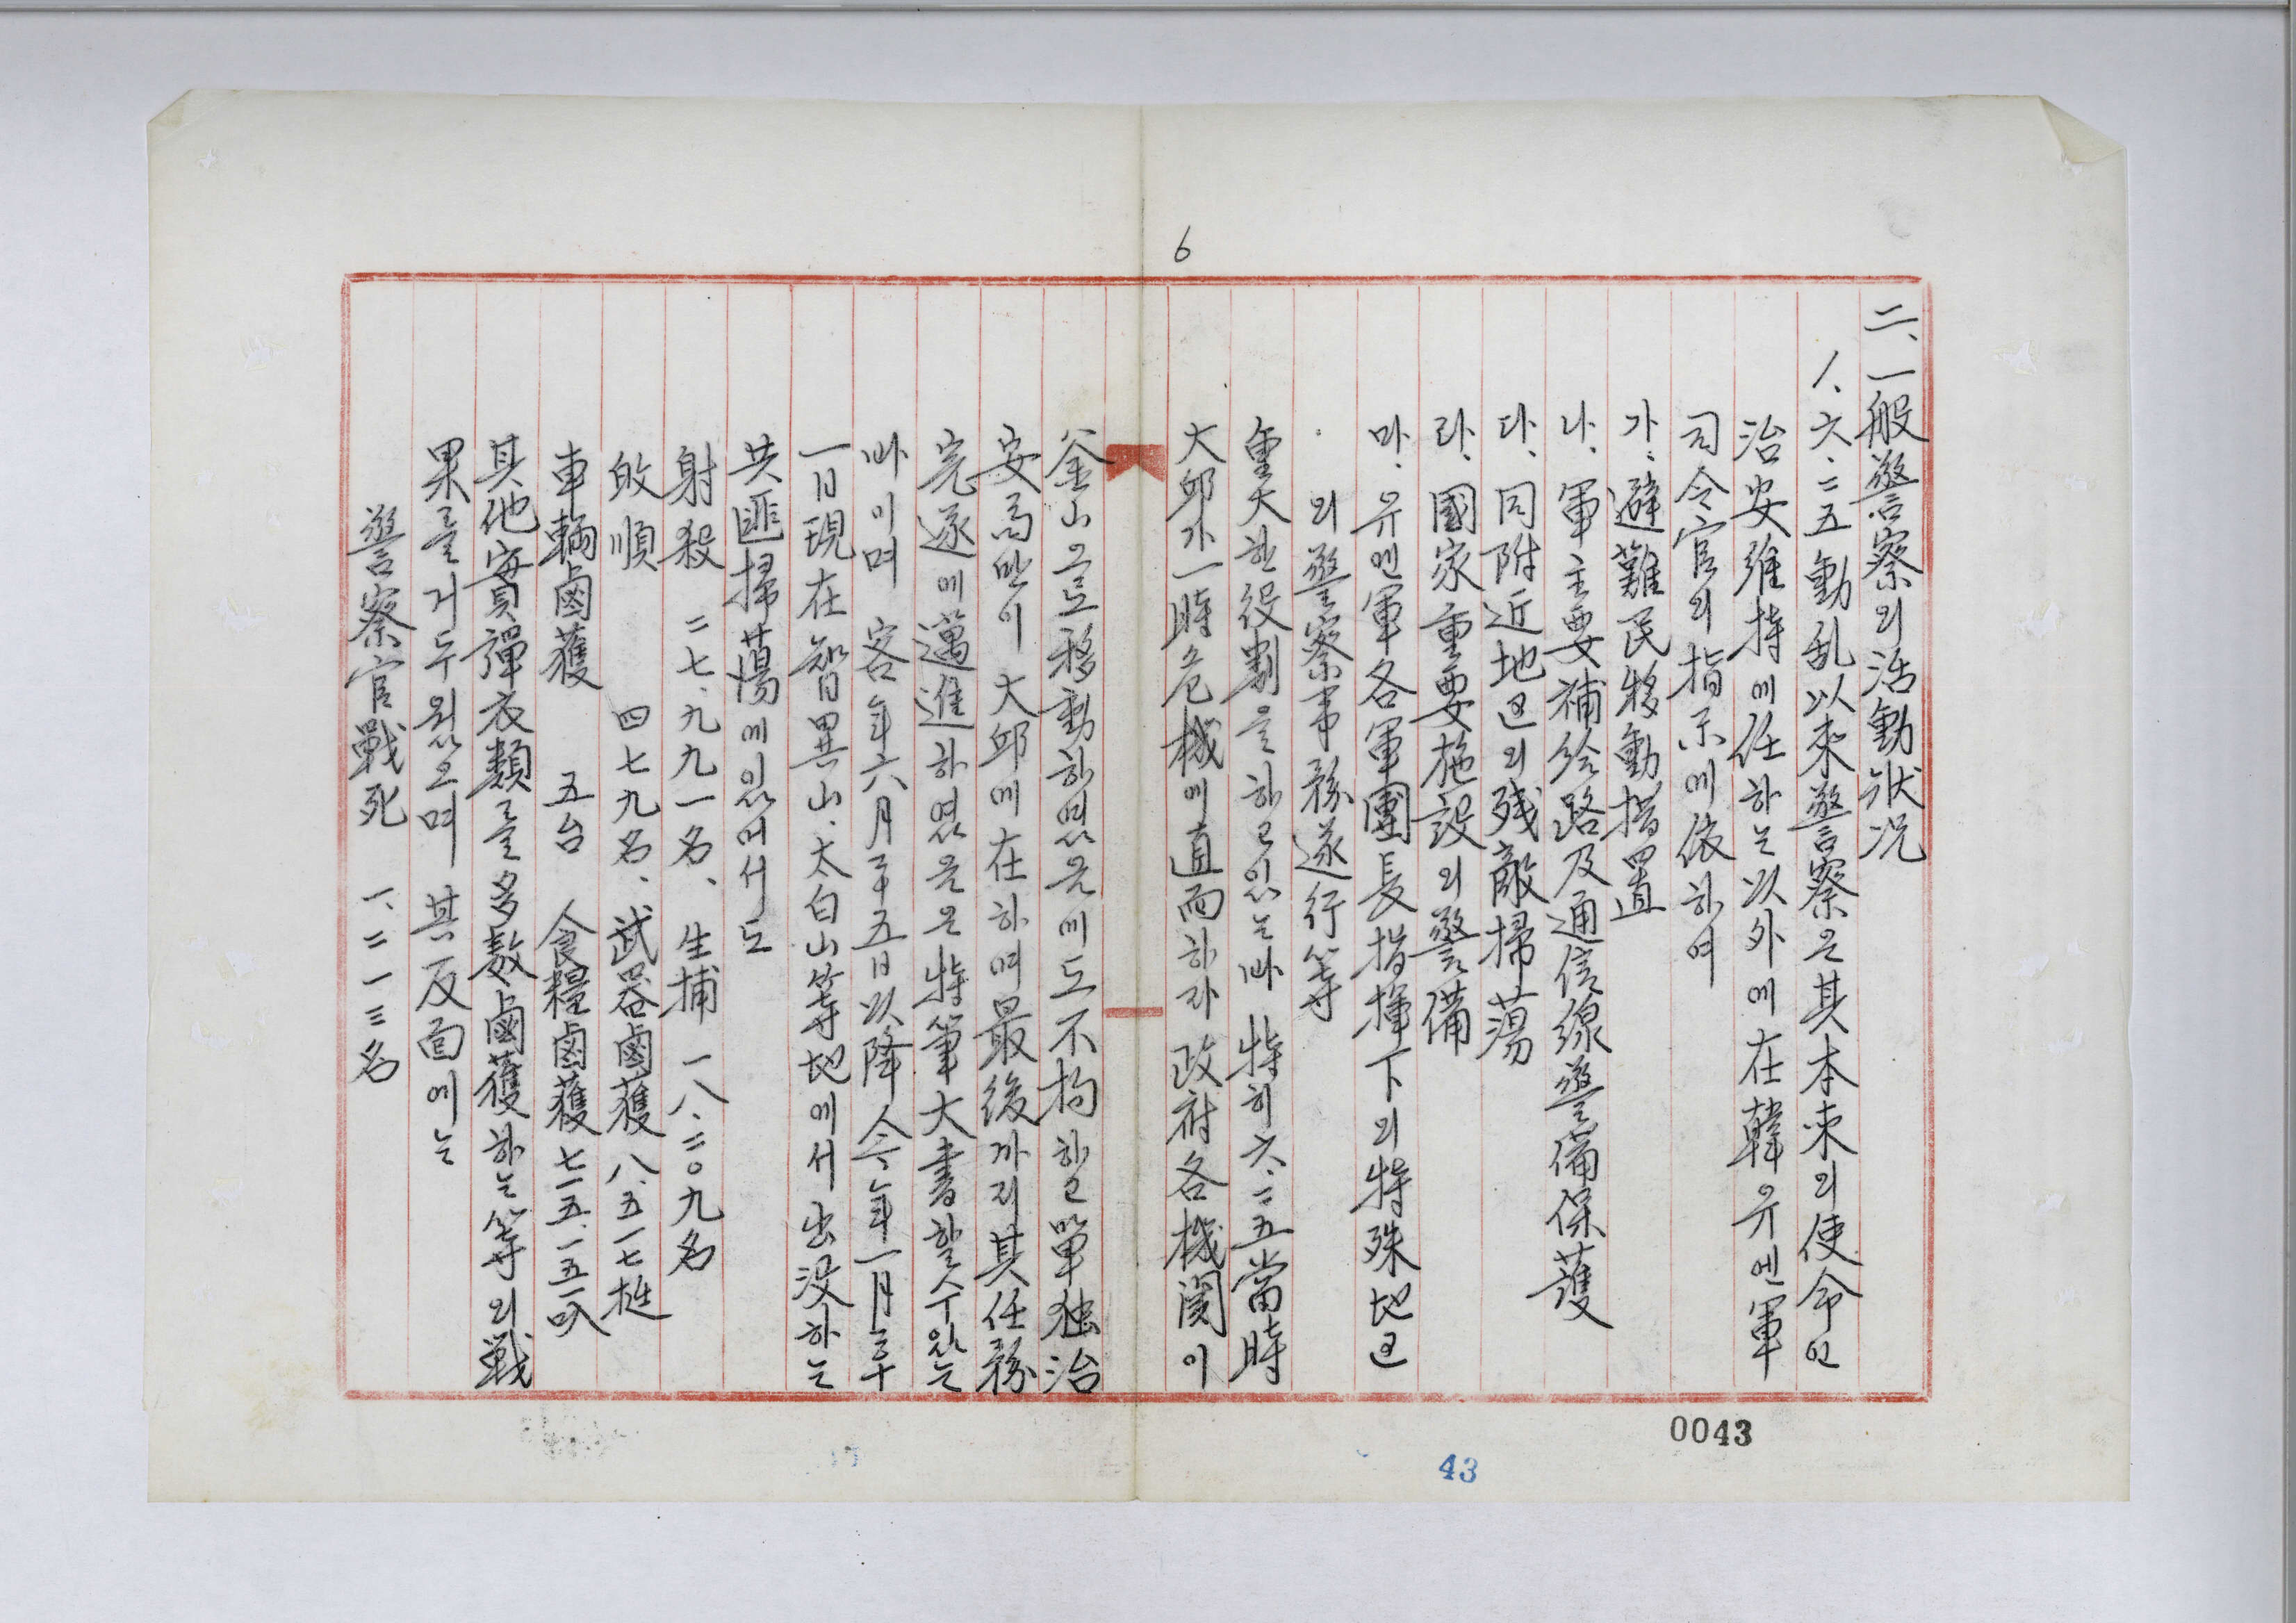 6
二、一般警察의活動狀况
1、六·二五動乱以來警察은其本來의使命인
治安維持에任하는以外에在韓유엔軍
司令官의指示에依하여
가、避難民移動措置
나、軍主要補給路及通信線警備保護
다、同附近地區의残敵掃蕩
라、國家重要施設의警備
마、유엔軍各軍團長指揮下의特殊地區
의警察事務遂行等
重大한役割을하고있는바 特히六·二五當時
大邱가一時危機에直面하자 政府各機関이
釜山으로移動하였음에도不拘하고單独治
安局만이大邱에在하며最後까지其任務
完遂에邁進하였음은特筆大書할수있는
바이며 客年六月二十五日以降今年一月三十
一日現在智異山、太白山等地에서出没하는
共匪掃蕩에있어서도
射殺 二七、九九一名、 生捕 一八、二〇九名
敀順 四七九名、 武器鹵獲 八、五一七挺
車輛鹵獲 五台 食糧鹵獲 七一五、一五一叺
其他實彈衣類를多数鹵獲하는等의戰
果를거두웠으며 其反面에는
警察官戰死 一、二一三名
0043
43